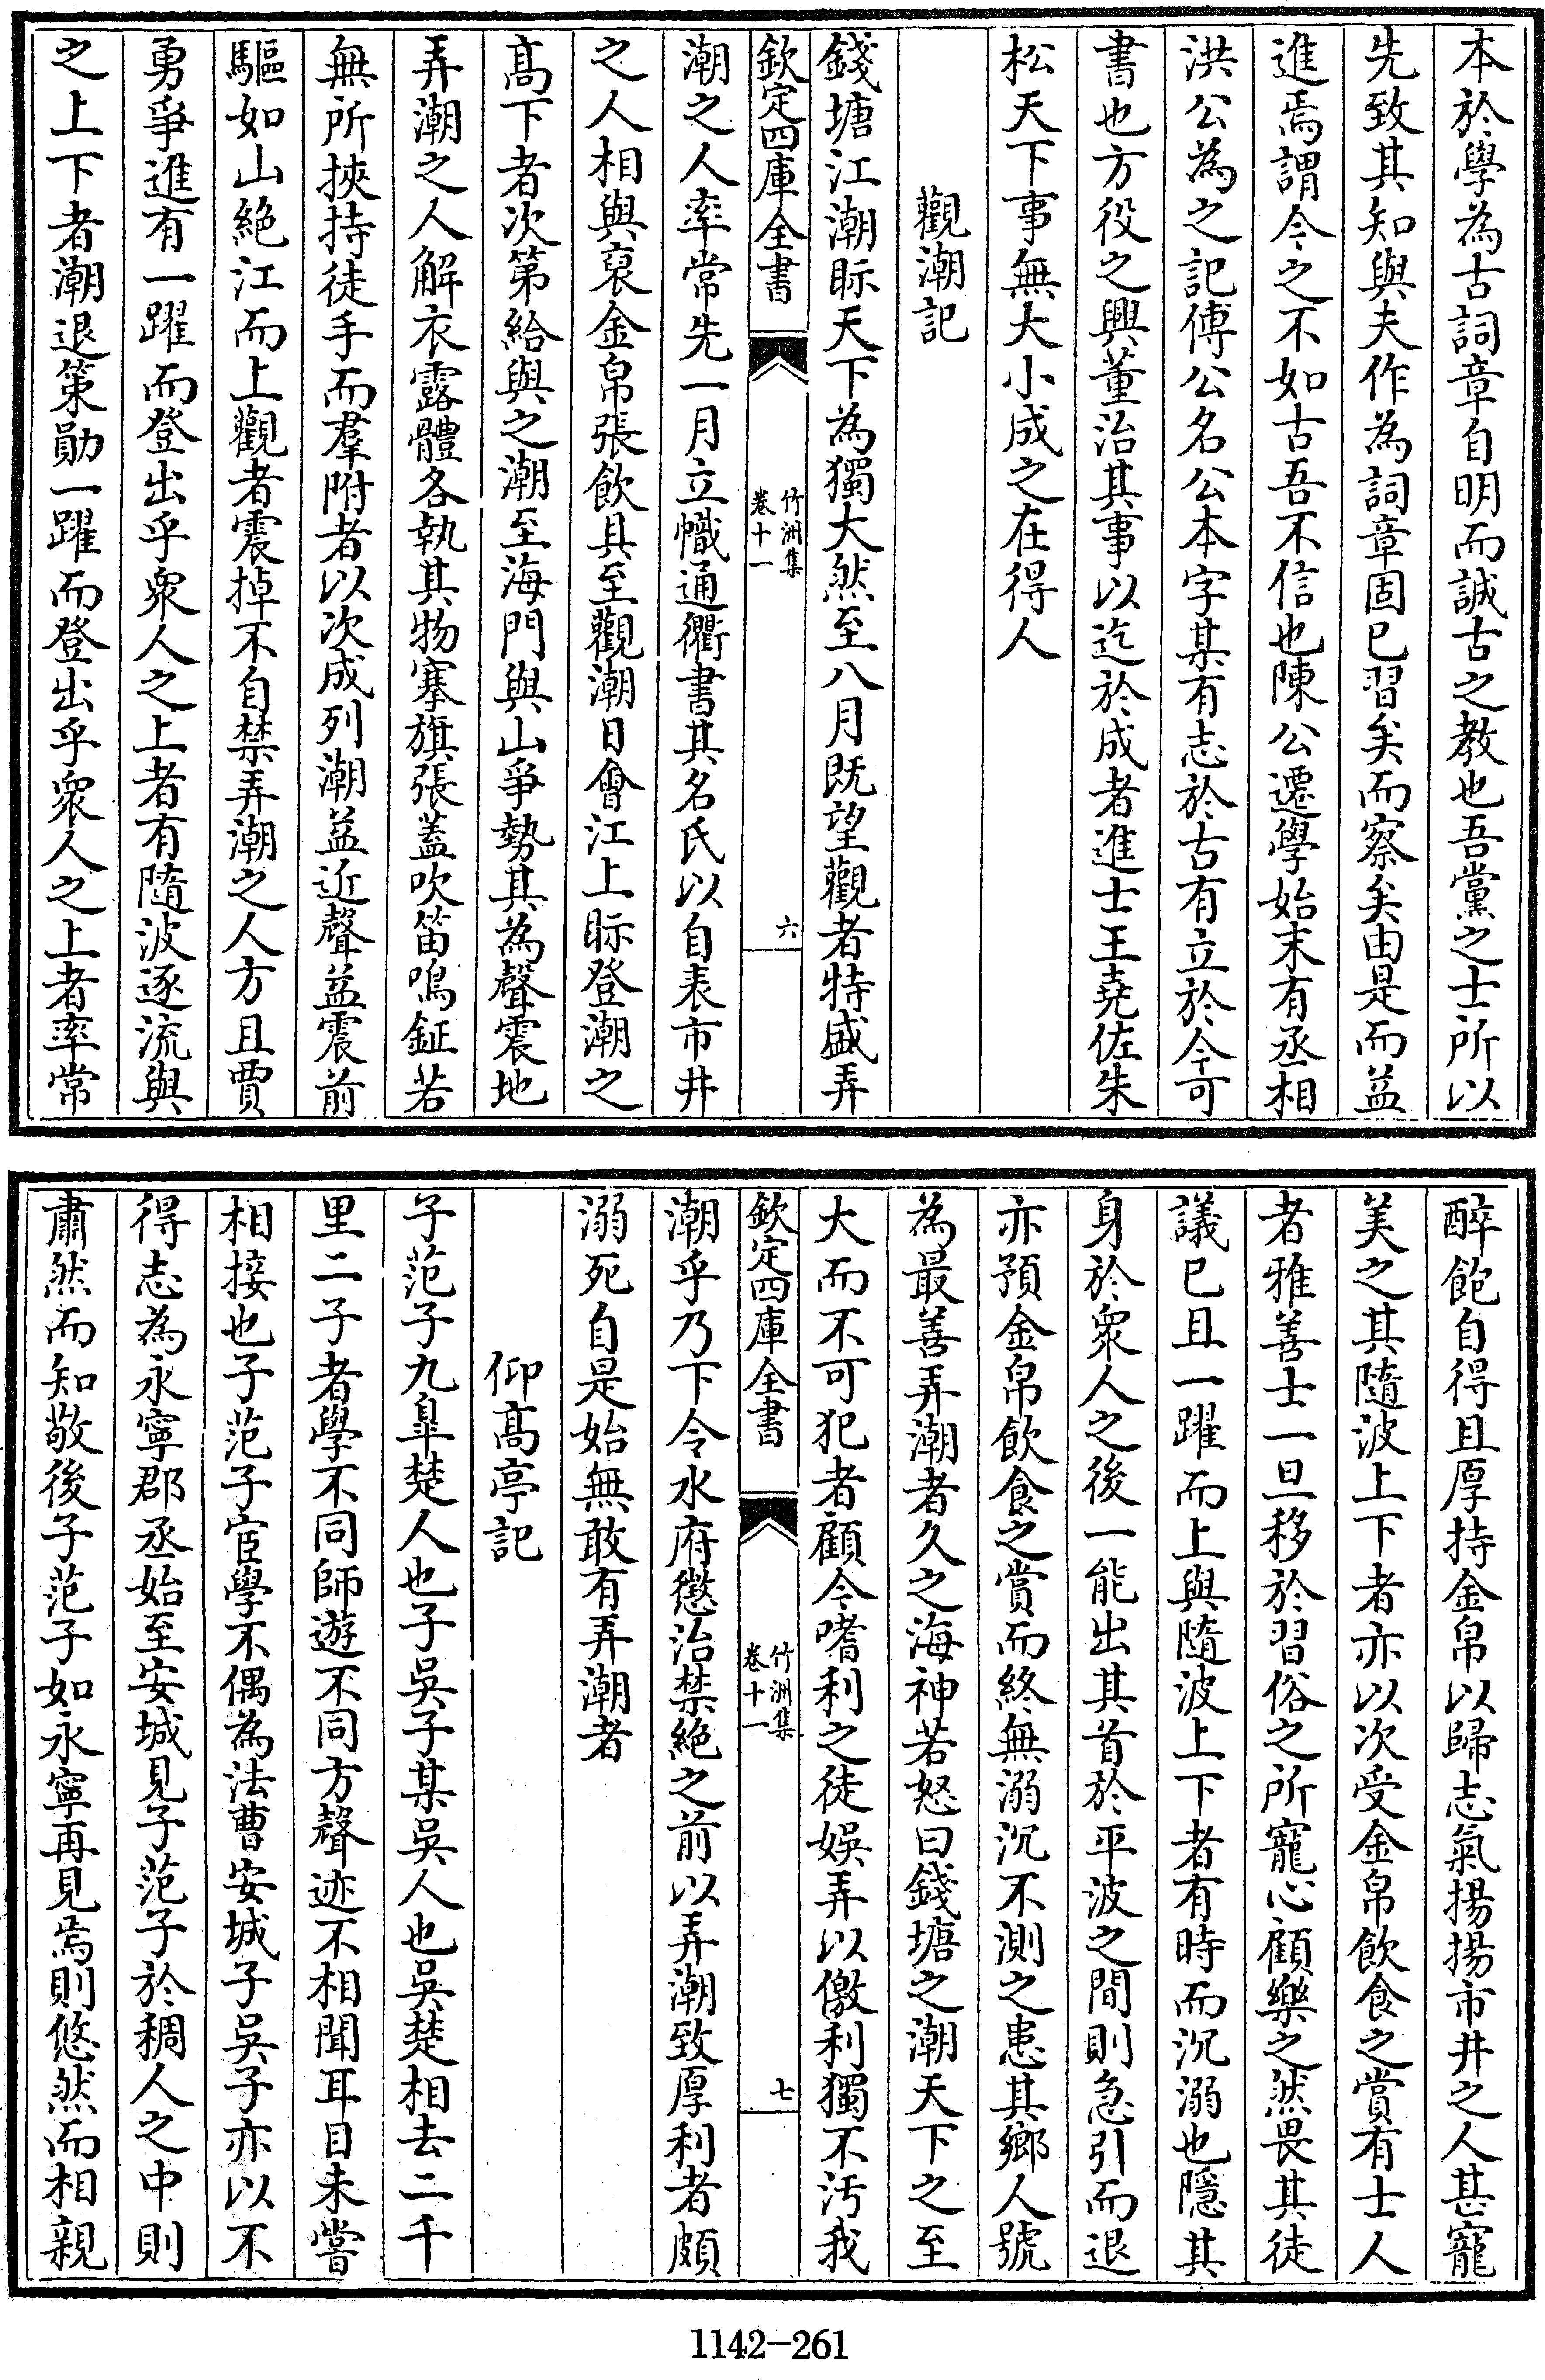 本於學為古詞章自明而誠古之教也吾黨之士所以
先致其知與夫作為詞章固已習矣而察矣由是而益
進焉謂今之不如古吾不信也陳公遷學始末有丞相
洪公為之記傅公名公本字某有志於古有立於今可
書也方役之興董治其事以迄於成者進士王堯佐朱
松天下事無大小成之在得人
觀潮記
錢塘江潮眎天下為獨大然至八月既望觀者特盛弄
欽定四庫全書
竹洲集
卷十一
六
潮之人率常先一月立幟通衢書其名氏以自表市井
之人相與裒金帛張飲具至觀潮日會江上眎登潮之
高下者次第給與之潮至海門與山爭勢其為聲震地
弄潮之人解衣露體各執其物搴旗張蓋吹笛鳴鉦若
無所挾持徒手而羣附者以次成列潮益近聲益震前
驅如山絕江而上觀者震掉不自禁弄潮之人方且賈
勇爭進有一躍而登出乎衆人之上者有隨波逐流與
之上下者潮退策勛一躍而登出乎衆人之上者率常
醉飽自得且厚持金帛以歸志氣揚揚市井之人甚寵
美之其隨波上下者亦以次受金帛飲食之賞有士人
者雅善士一旦移於習俗之所寵心顧樂之然畏其徒
議已且一躍而上與隨波上下者有時而沉溺也隱其
身於衆人之後一能出其首於平波之間則急引而退
亦預金帛飲食之賞而終無溺沉不測之患其鄉人號
為最善弄潮者久之海神若怒曰錢塘之潮天下之至
大而不可犯者顧今嗜利之徒娛弄以儌利獨不汚我
欽定四庫全書
竹洲集
卷十一
七
潮乎乃下令水府懲治禁絕之前以弄潮致厚利者頗
溺死自是始無敢有弄潮者
仰高亭記
子范子九臯楚人也子吳子某吳人也吳楚相去二千
里二子者學不同師遊不同方聲迹不相聞耳目未嘗
相接也子范子宦學不偶為法曹安城子吳子亦以不
得志為永寧郡丞始至安城見子范子於稠人之中則
肅然而知敬後子范子如永寧再見焉則悠然而相親
1142-261